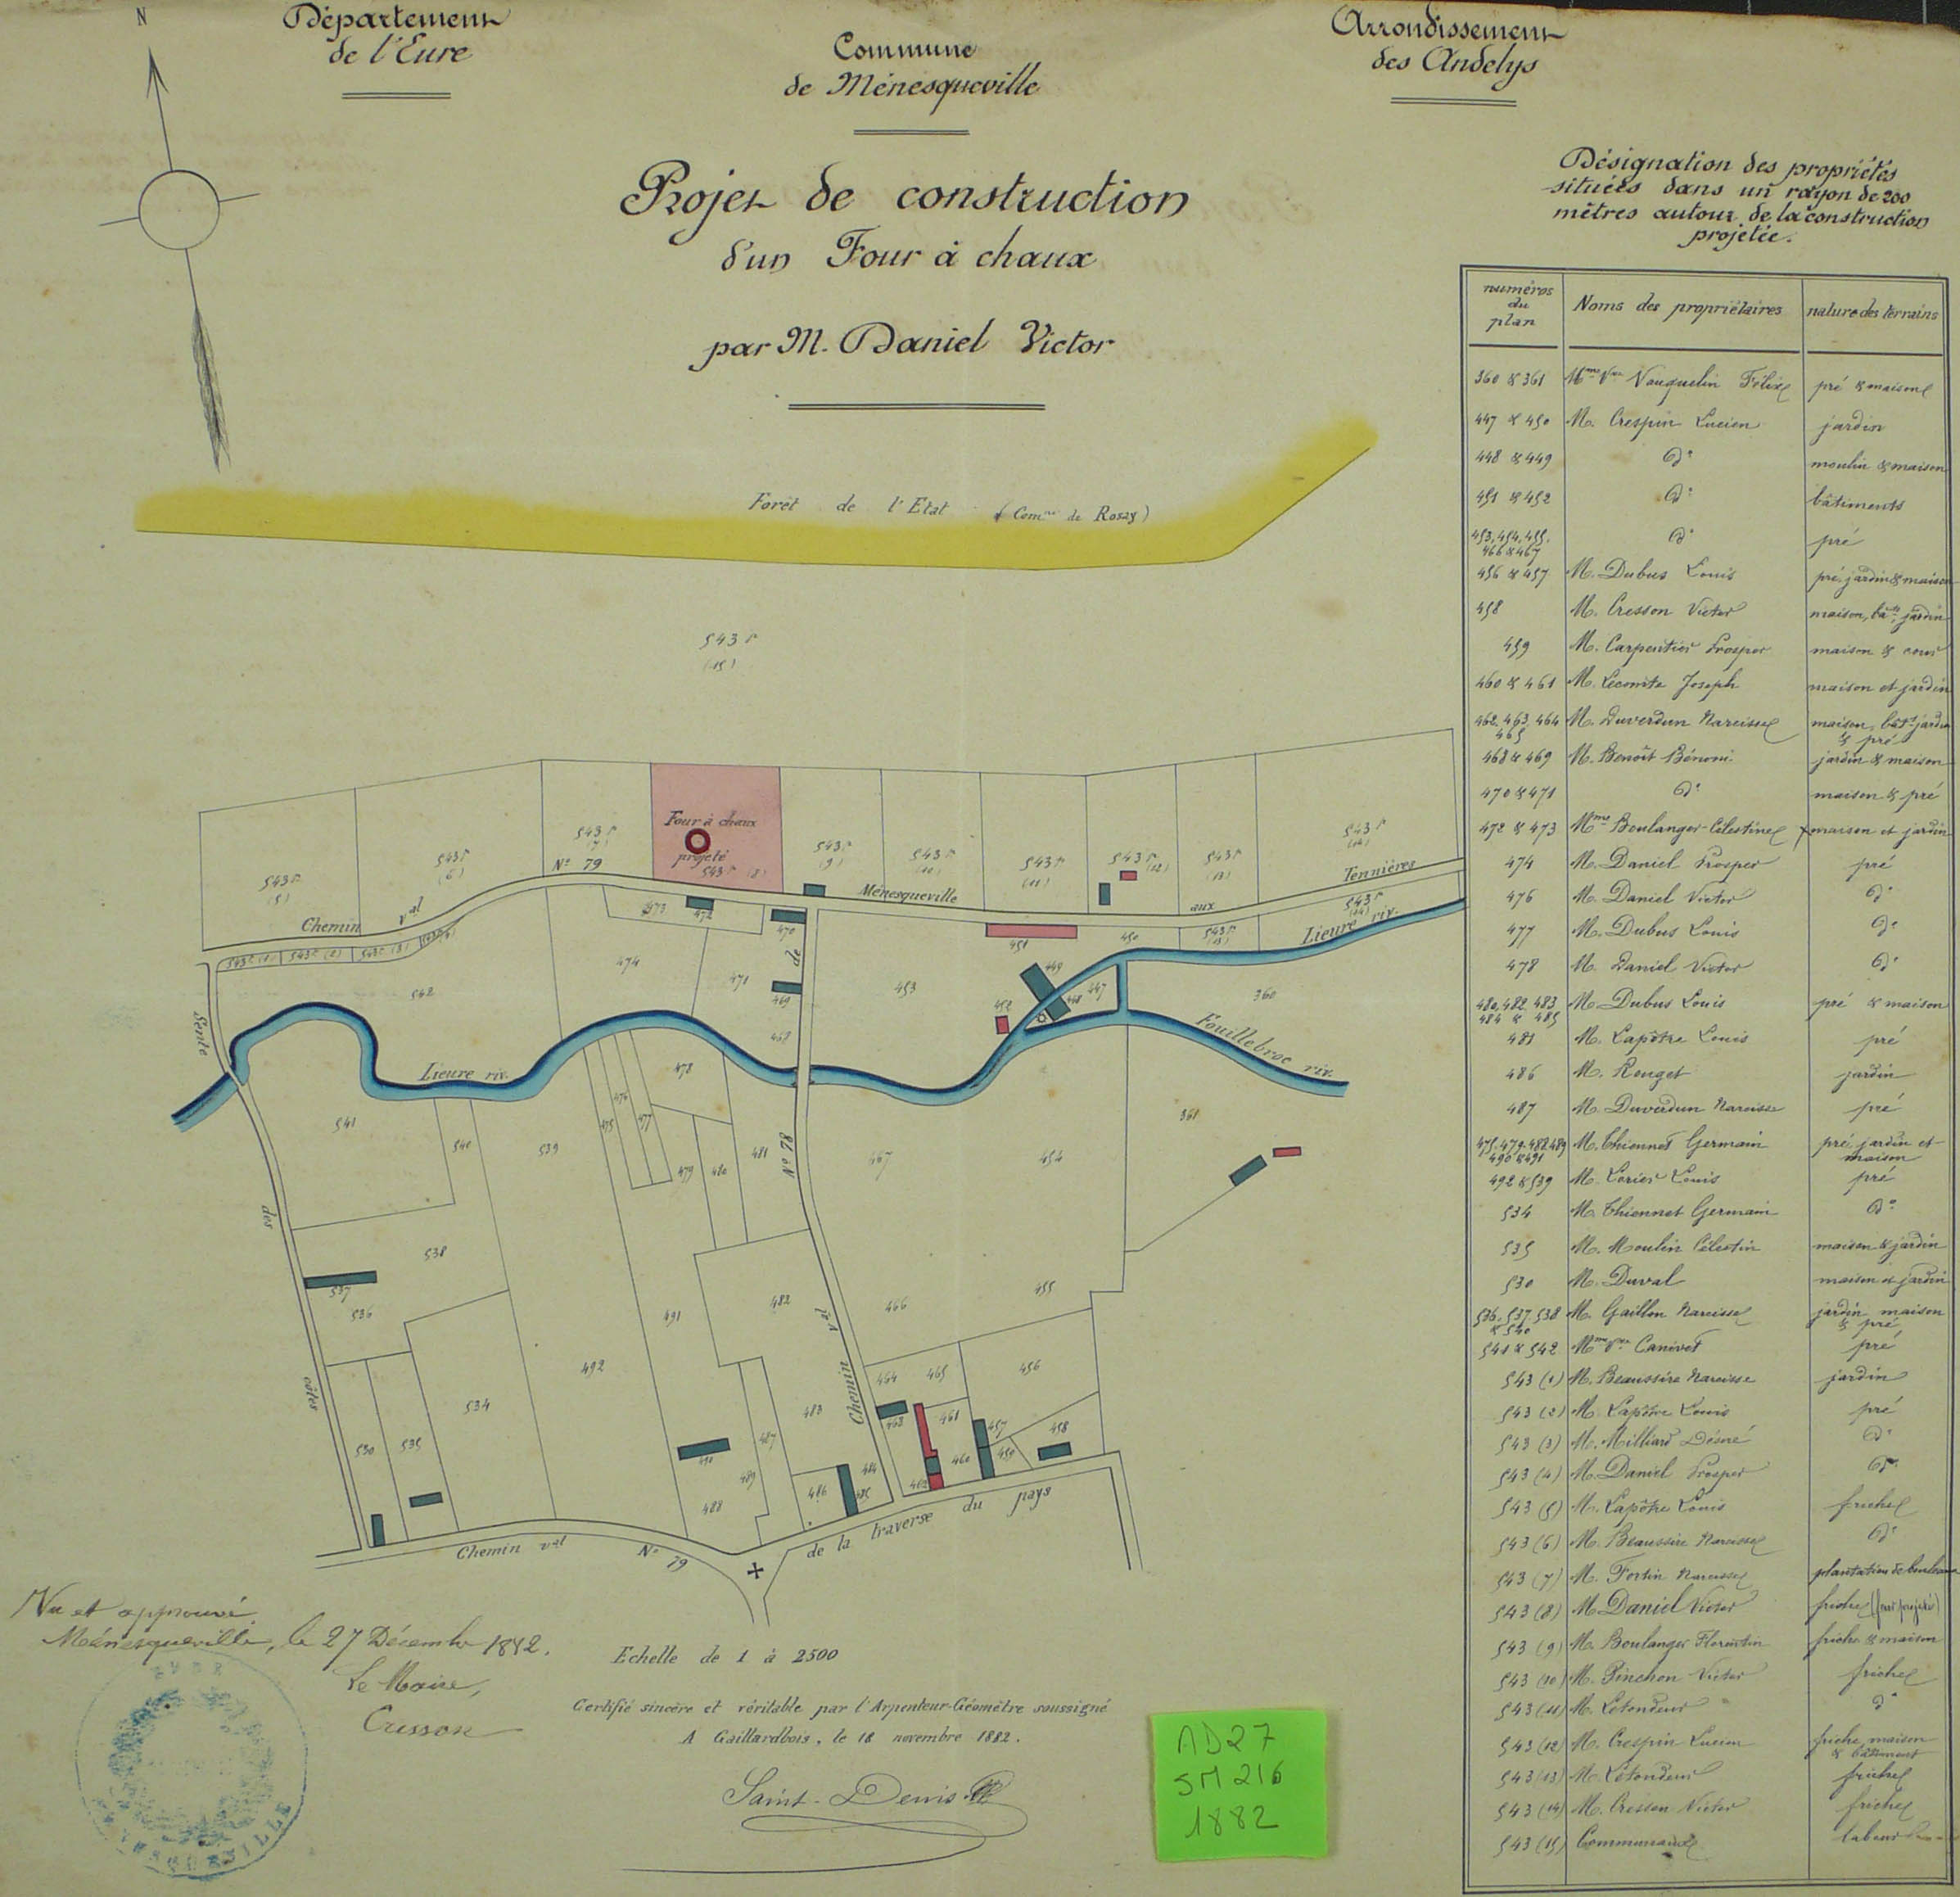 N
Département
de l'Eure
Commune
de Ménesqueville
Arrondissement
des Andelys
Projet de construction
d'un Four à chaux
par M. Daniel Victor
Forêt de l'Etat (Comne de Rosay)
543 P
(15)
543 P
(5)
543 P
(6)
543 P
(7)
Four à chaux
projeté
543 P
543 P
(9)
543 P
(10)
543 P
(11)
543 P
(12)
543 P
(13)
543 P
Chemin val No 79 Ménesqueville aux Tennières
543 P (1)
543 P (2)
543 P (3)
543 P
(14)
543 P
(13)
473
472
470
451
450
Lieure riv.
542
474
471
469
453
449
448
447
452
360
468
Sente des côtes
Lieure riv.
Fouillebroc riv.
478
476
475
477
541
540
539
479
480
481
467
454
361
Chemin val No 78 de
538
537
536
491
482
466
455
492
464
465
456
534
483
463
461
457
458
459
460
462
530
535
490
487
489
488
486
484
485
Chemin val No 79 de la traverse du pays
Vu et approuvé
Ménesqueville, le 27 Décembre 1882.
Le Maire,
Cresson
Echelle de 1 à 2500
Certifié sincère et véritable par l'Arpenteur-Géomètre soussigné
A Gaillardbois, le 18 novembre 1882.
Saint-Denis
EURE
AD27
5M216
1882
Désignation des propriétés
situées dans un rayon de 200
mètres autour de la construction
projetée.
numéros du plan Noms des propriétaires nature des terrains
360 & 361 Mme Vve Vauquelin Félix pré & maison
447 & 450 M. Crespin Lucien jardin
448 & 449 do moulin & maison
451 & 452 do bâtiments
453, 454, 455, 466 & 467 do pré
456 & 457 M. Dubus Louis pré, jardin & maison
458 M. Cresson Victor maison, bâts, jardin
459 M. Carpentier Prosper maison & cour
460 & 461 M. Lecomte Joseph maison et jardin
462, 463, 464 465 M. Duverdun Narcisse maison, bâts, jardin & pré
468 & 469 M. Benoît Bénoni jardin & maison
470 & 471 do maison & pré
472 & 473 Mme Boulanger Célestine maison et jardin
474 M. Daniel Prosper pré
476 M. Daniel Victor do
477 M. Dubus Louis do
478 M. Daniel Victor do
480, 482, 483 484 & 485 M. Dubus Louis pré & maison
481 M. Lapôtre Louis pré
486 M. Rouget jardin
487 M. Duverdun Narcisse pré
475, 479, 488, 489 490 & 491 M. Thiennet Germain pré, jardin et maison
492 & 539 M. Lorier Louis pré
534 M. Thiennet Germain do
535 M. Moulin Célestin maison & jardin
530 M. Duval maison et jardin
536, 537, 538 & 540 M. Gaillon Narcisse jardin maison & pré
541 & 542 Mme Vve Canivet pré
543 (1) M. Beaussire Narcisse jardin
543 (2) M. Lapôtre Louis pré
543 (3) M. Milliard Désiré do
543 (4) M. Daniel Prosper do
543 (5) M. Lapôtre Louis friche
543 (6) M. Beaussire Narcisse do
543 (7) M. Fortin Narcisse plantation de bouleaux
543 (8) M. Daniel Victor friche (four projeté)
543 (9) M. Boulanger Florentin friche & maison
543 (10) M. Pinchon Victor friche
543 (11) M. Letondeur do
543 (12) M. Crespin Lucien friche, maison & bâtiment
543 (13) M. Letondeur friche
543 (14) M. Cresson Victor friche
543 (15) Communaux labour